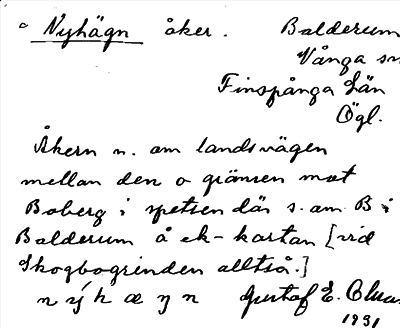 Nyhägn åker. Balderum
Vånga sn
Finspånga Län
Ögl.
Åkern n. om landsvägen
mellan den o gränsen mot
Boberg i spetsen där s. om B i
Balderum å ek-kartan [vid
Skogbogrinden alltså.]
n ý h æ ŋ n Gustaf E.
1931